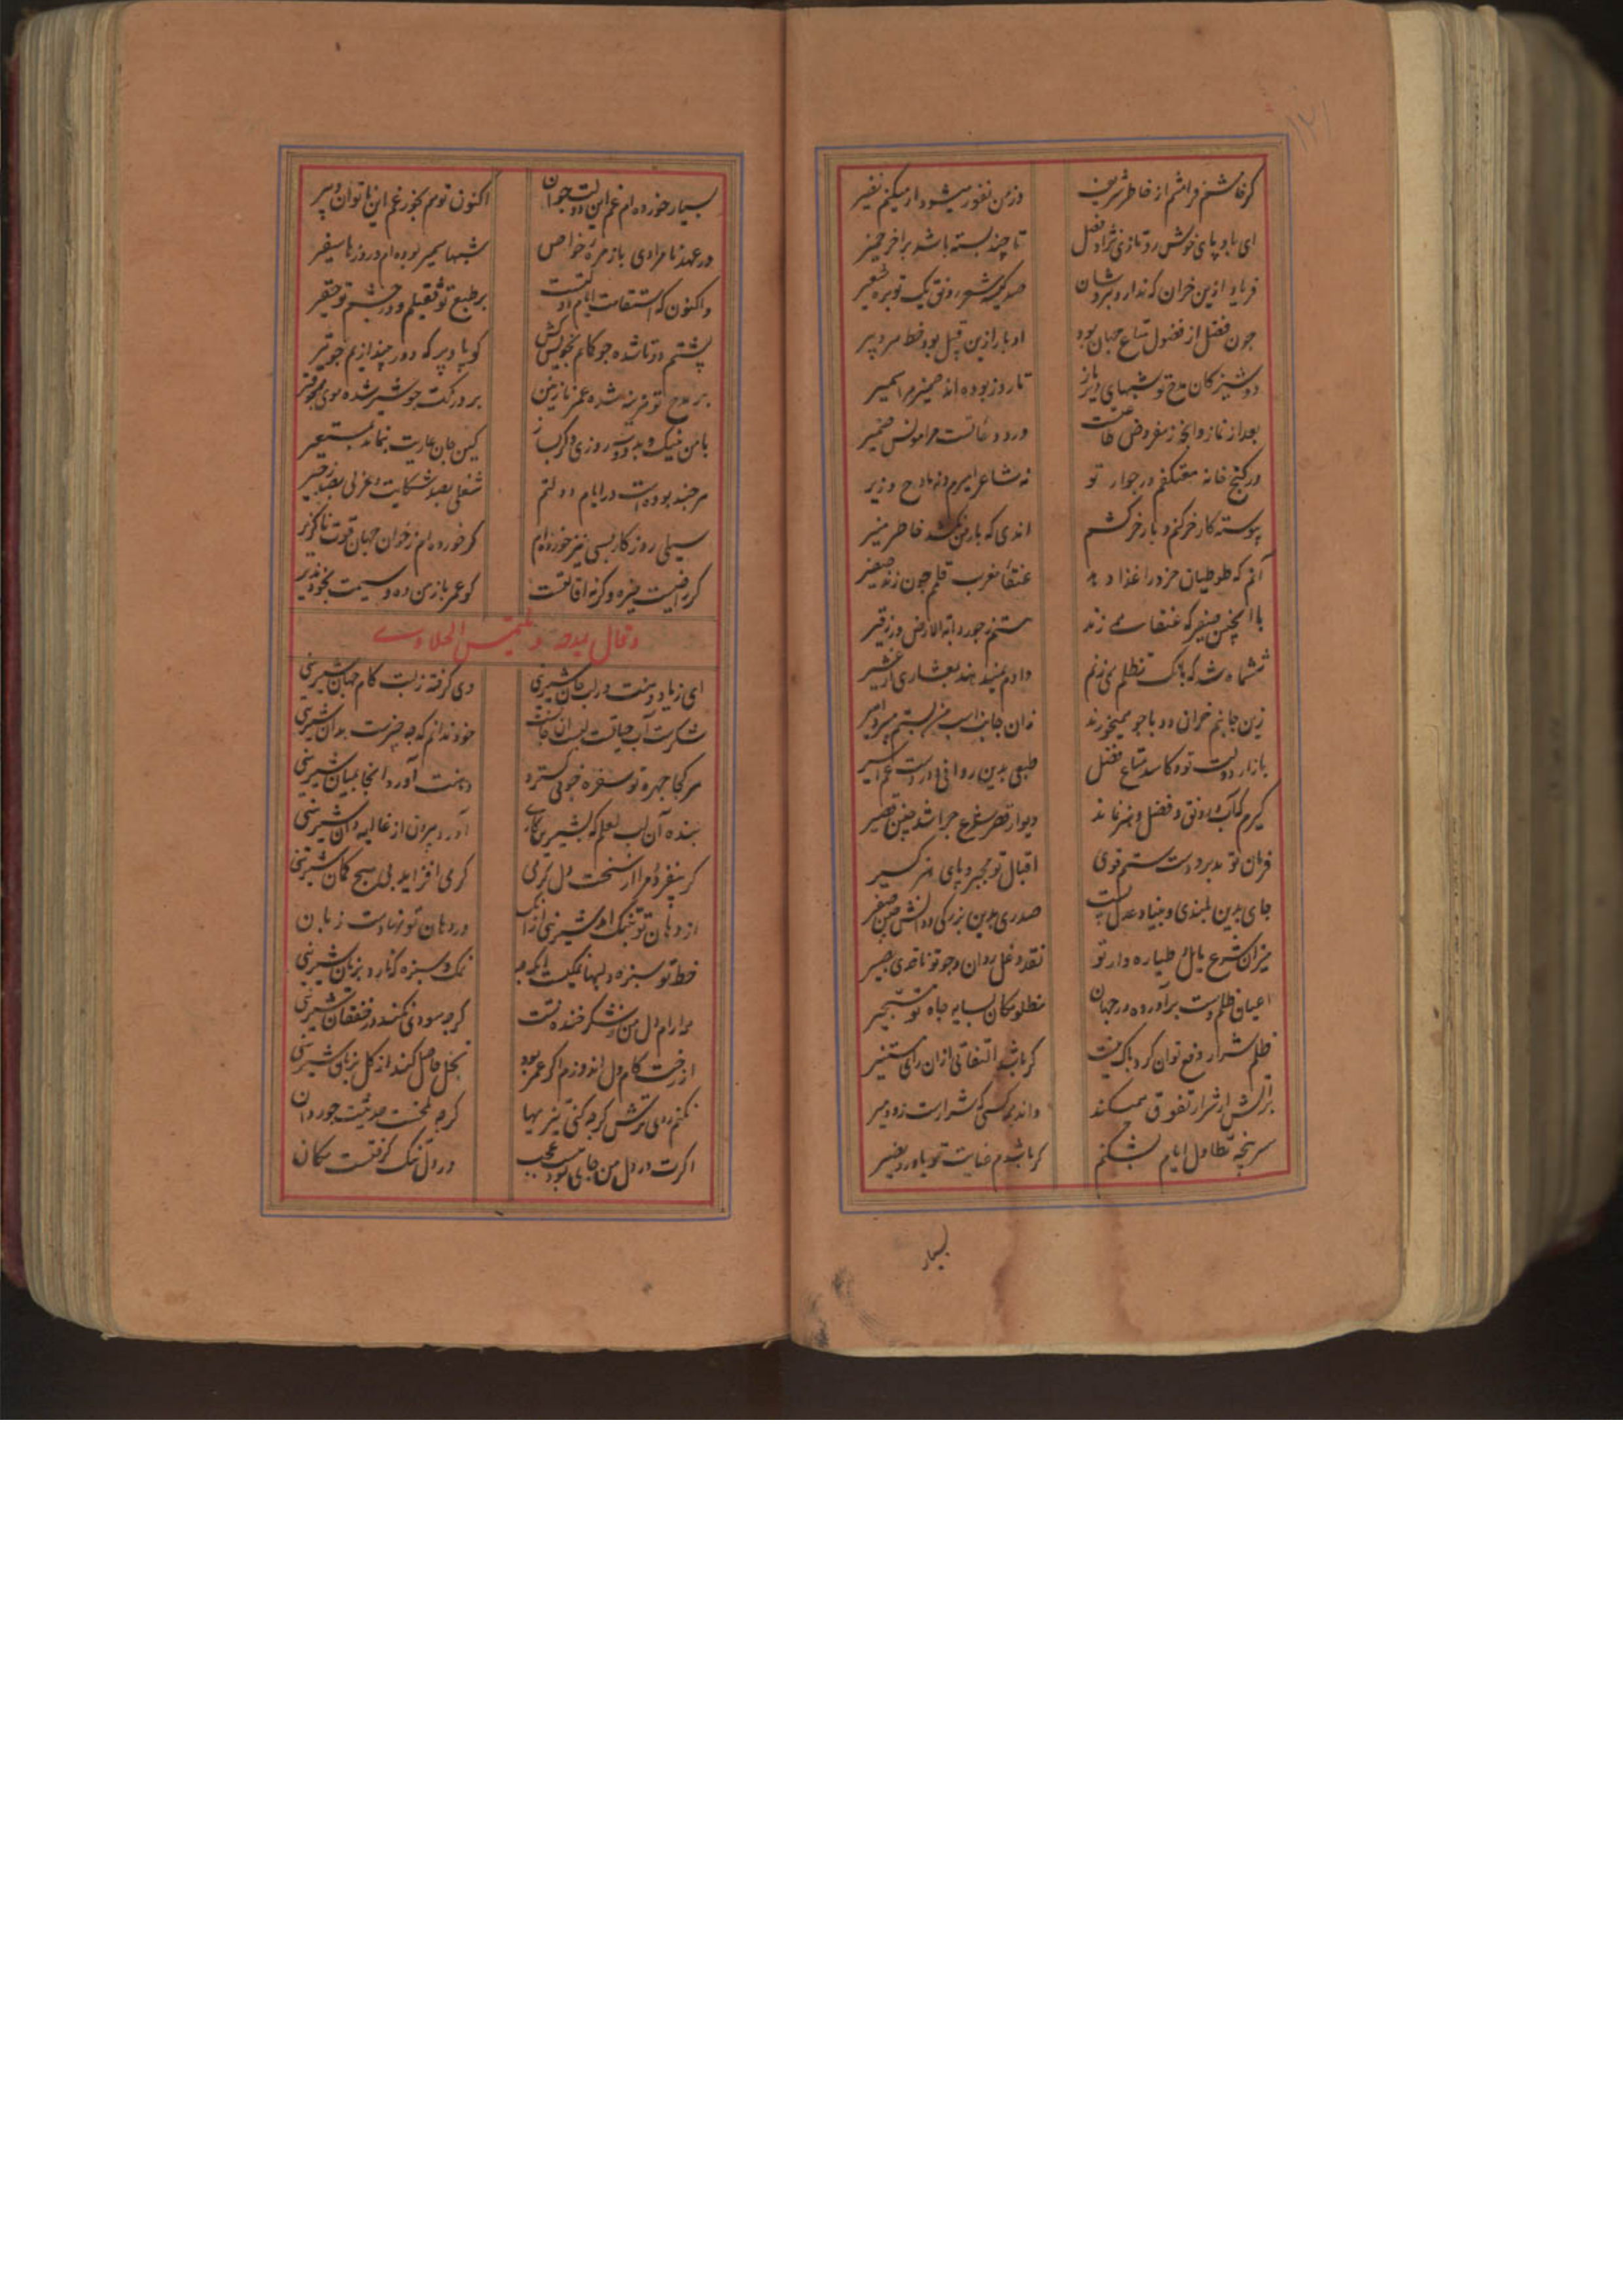 ۱۲۱
وزمن نفور میشود ار میکنم نفیر
ای باد پای خوش رو تازی نژاد فضل تا چند بسته باشد بر آخر حمیر
فریاد ازین خران که ندارد بر شان صد کیسه شعر رونق یک توبره شعیر
چون فضل از فضول متاع جهان بود ادبار ازین قبل بود خط مرد پیر
دوشیزکان مدح تو شبهای دیر باز تا روز بوده اند ضمیر مرا سمیر
بعد از نماز وانچه ز مفروض طاعتست ورد دعات مرا مونس ضمیر
در کنج خانه معتکفم در جوار تو نه شاعر امیرم و نه مادح وزیر
پیوسته کار خر کنم و بار خر کشم اندی که بار من نکشد خاطر منیر
آنم که طوطیان خرد را غذا دهد عنقاء مغرب قلمم چون زند صفیر
با اینچنین صفیر که عنقا همی زند
ششماه شد که بانک تظلم می زنم
زین جانبم خران دو پا جو همیخورند زان جانب اسب
بازار دولت تو و کاسد متاع فضل طبعی بدین روانی و در دست غم اسیر
کرم کآب و رونق و فضل و هنر نماند دیوار قصر شرع چرا شد چنین قصیر
فرمان تو مدبر و دست ستم قوی اقبال تو مجبر و پای هنر کسیر
جای بدین بلندی و بنیاد عدل پست صدری بدین بزرکی و دانش چنین صغیر
میزان شرع مایل و طیاره دار تو نقد دغل روان و چو تو ناقدی بصیر
اعیان ظلم دست برآورده در جهان مظلومکان بسایه جاه تو مستجیر
ظلم شرار دفع توان کرد کر باشد التفاتی ازان رای مستنیر
بر آتش ار شرار تفوق همیکند داند همه کسی که شرارت زود میر
سر پنجه تطاول ایام بشکنم کر باشدم عنایت تو یاور و نصیر
بسیار
بسیار خورده ام غم این دولت جوان اکنون تو هم بخور غم این ناتوان پیر
در عهد نامرادی باز مره خواص شبها سمیر بوده ام و روزها سفیر
واکنون که استقامت ایام دولتست بر طبع تو ثقیلم و در چشم تو حقیر
پشتم دوتا شده چو کمان بخویش کش
بر مدح تو هزینه شده عمر نازنین بر درکهت چو شیر شده موی همچو قیر
با من نیک و بد دو سه روزی دکر بساز کین جان عاریت بنماند بمستعیر
هر چند بوده است در ایام دولتم شغلی بصد شکایت و عزلی بصد زحیر
سیلی روزکار بسی نیز خورده ام کر خورده ام ز خوان جهان قوت ناکزیر
کر راضیت خیره وکرنه اقالتست کو عمر باز من ده و سیمت بخود پذیر
وقال یمدحه و یلتمس الحلاوی
ای زیاد دهنت در لب جان شیرینی وی کرفته ز لبت کام جهان شیرینی
شکرت آب حیاتست خود ندانم که چه چیزست بدان شیرینی
هر کجا چهره تو سفره خوبی کسترد دهنت آورد انجا بمیان شیرینی
بنده آن لب لعلم که بشیرین کاری آورد بیرون از غالیه دان شیرینی
کر نیفزود مرا از سخنت دل کرمی کرمی افزاید بی هیچ کمان شیرینی
از دهان تو تنک امد شیرینی ازانک در دهان تو نهادست زبان
خط تو سبزه و لبها نمکست نمک و سبزه که نارد بزیان شیرینی
هر آرام دل من ز شکر خنده تست کرچه سودی نکند در خفقان شیرینی
از رخت کام دل اندوزم اکر عمر بود نحل حاصل کند از کل بزمان شیرینی
نکنم روی ترش کرچه کنی تیزیها کرچه تلخست حدیثت چو روان
اکرت در دل من جای بود نیست عجب در دل تنک کرفتست مکان